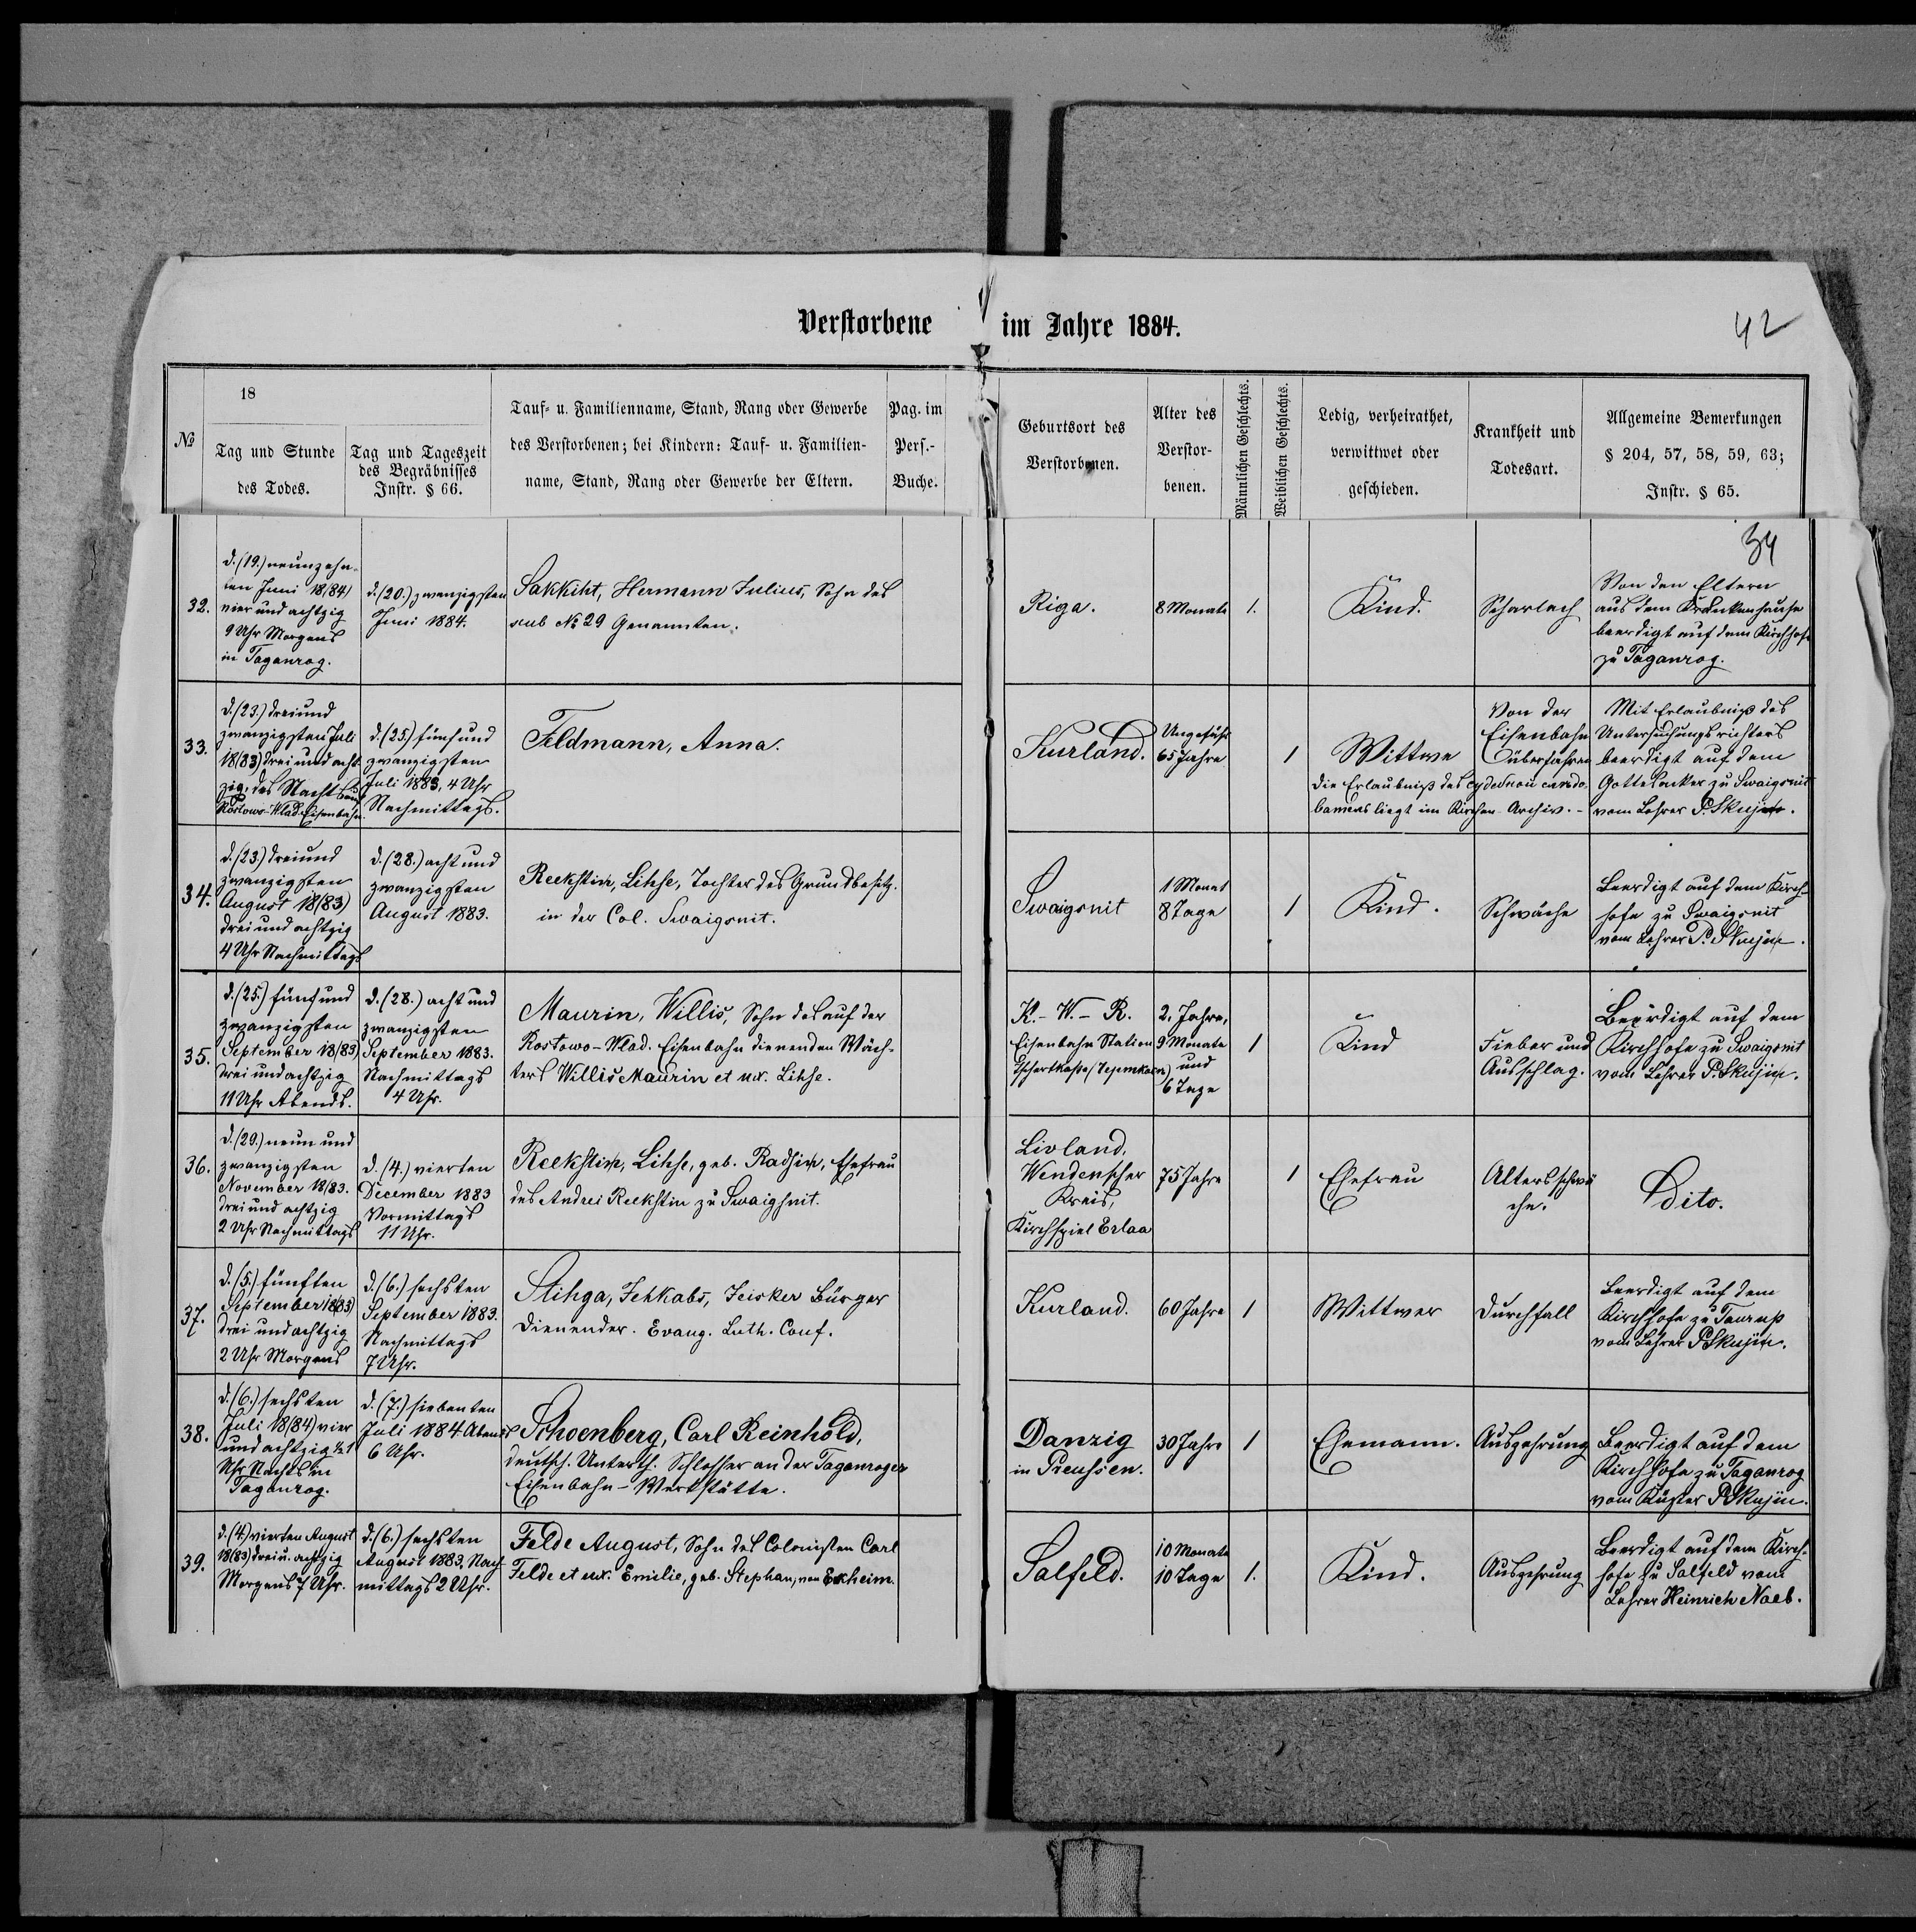 Verstorbene im Jahre 1884.
42
№
18
Tag und Stunde
des Todes.
Tag und Tageszeit
des Begräbnisses
Instr. § 66.
Tauf- u. Familienname, Stand, Rang oder Gewerbe
des Verstorbenen; bei Kindern: Tauf- u. Familien-
name, Stand, Rang oder Gewerbe der Eltern.
Pag. im
Pers.-
Buche.
Geburtsort des
Verstorbenen.
Alter des
Verstor-
benen.
Männlichen Geschlechts.
Weiblichen Geschlechts.
Ledig, verheirathet,
verwittwet oder
geschieden.
Krankheit und
Todesart.
Allgemeine Bemerkungen
§ 204, 57, 58, 59, 63;
Instr. § 65.
34
32.
d. (19.) neunzehn-
ten Juni 18(84)
vier und achtzig
9 Uhr Morgens
in Taganrog.
d. (20.) zwanzigsten
Juni 1884.
Sakkiht, Hermann Julius, Sohn des
sub № 29 Genannten.
Riga.
8 Monate
1.
Kind.
Scharlach
Von den Eltern
aus dem Krankenhause
beerdigt auf dem Kirchhofe
zu Taganrog.
33.
d. (23.) drei und
zwanzigsten Juli
18(83) drei und acht-
zig, des Nachts
Rostowo-Wlad. Eisenbahn.
d. (25.) fünf und
zwanzigsten
Juli 1883, 4 Uhr
Nachmittags.
Feldmann, Anna.
Kurland.
Ungefähr
65 Jahre
1
Wittwe
Die Erlaubniß des
liegt im Kirchen-Archiv.-
Von der
Eisenbahn
überfahren
Mit Erlaubniß des
Untersuchungsrichters
beerdigt auf dem
Gottesacker zu Swaigsnit
vom Lehrer P. Skujin.
34.
d. (23.) drei und
zwanzigsten
August 18(83)
drei und achtzig
4 Uhr Nachmittags
d. (28.) acht und
zwanzigsten
August 1883.
Reekstin, Lihse, Tochter des Grundbesitz.
in der Col. Swaigsnit.
Swaigsnit
1 Monat
8 Tage
1
Kind.
Schwäche
Beerdigt auf dem Kirch-
hofe zu Swaigsnit
vom Lehrer P. Skujin.
35.
d. (25.) fünf und
zwanzigsten
September 18(83)
drei und achtzig
11 Uhr Abends.
d. (28.) acht und
zwanzigsten
September 1883.
Nachmittags
4 Uhr.
Maurin, Willis, Sohn des auf der
Rostowo-Wlad. Eisenbahn dienenden Wäch-
ters Willis Maurin et ux. Lihse.
K.- W.- R.
Eisenbahn Station
2. Jahre,
9 Monate
und
6 Tage
1
Kind
Fieber und
Ausschlag.
Beerdigt auf dem
Kirchhofe zu Swaigsnit
vom Lehrer P. Skujin.
36.
d. (29.) neun und
zwanzigsten
November 18/83.
drei und achtzig
2 Uhr Nachmittags
d. (4.) vierten
December 1883
Vormittags
11 Uhr.
Reekstin, Lihse, geb. Radsin, Ehefrau
des Andrei Reekstin zu Swaigsnit.
Livland,
Wendenscher
Kreis,
Kirchspiel Erlaa
75 Jahre
1
Ehefrau
Altersschwä
che.
Dito.
37.
d. (5.) fünften
September 18(83)
drei und achtzig
2 Uhr Morgens
d. (6.) sechsten
September 1883.
Nachmittags
7 Uhr.
Stihga, Jehkabs, Jeisker Bürger
Dienender. Evang. Luth. Conf.
Kurland.
60 Jahre
1
Wittwer
Durchfall
Beerdigt auf dem
Kirchhofe zu Taurup
vom Lehrer P Skujin.
38.
d. (6.) sechsten
Juli 18(84) vier
und achtzig ½1
Uhr Nachts in
Taganrog.
d. (7.) siebenten
Juli 1884 Abends
6 Uhr.
Schoenberg, Carl Reinhold,
deutsch. Unterth. Schlosser an der Taganroger
Eisenbahn-Werkstätte.
Danzig
in Preussen.
30 Jahre
1
Ehemann.
Auszehrung
Beerdigt auf dem
Kirchhofe zu Taganrog
vom Küster P Skujin.
39.
d. (4.) vierten August
18(83) drei u. achtzig
Morgens 7 Uhr.
d. (6.) sechsten
August 1883, Nach-
mittags 2 Uhr.
Felde August, Sohn des Colonisten Carl
Felde et ux. Emilie, geb. Stephan, von Exheim.
Salfeld.
10 Monate
10 Tage
1.
Kind.
Auszehrung
Beerdigt auf dem Kirch-
hofe zu Salfeld vom
Lehrer Heinrich Naeb.